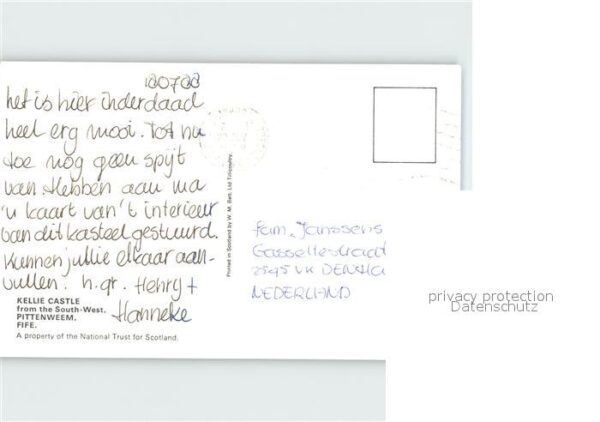 180788
het is hier inderdaad
heel erg mooi. Tot nu
toe nog geen spijt
van. Hebben aan ma
'n kaart van 't interieur
van dit kasteel gestuurd.
Kunnen jullie elkaar aan-
vullen. h.gr. Henry +
Hanneke
KELLIE CASTLE
from the South-West.
PITTENWEEM.
FIFE.
A property of the National Trust for Scotland.
Printed in Scotland by W. M. Bett. Ltd Tillicoultry.
fam. Janssens
Gasseltestraat
2545 VK DENHAAG
NEDERLAND
privacy protection
Datenschutz